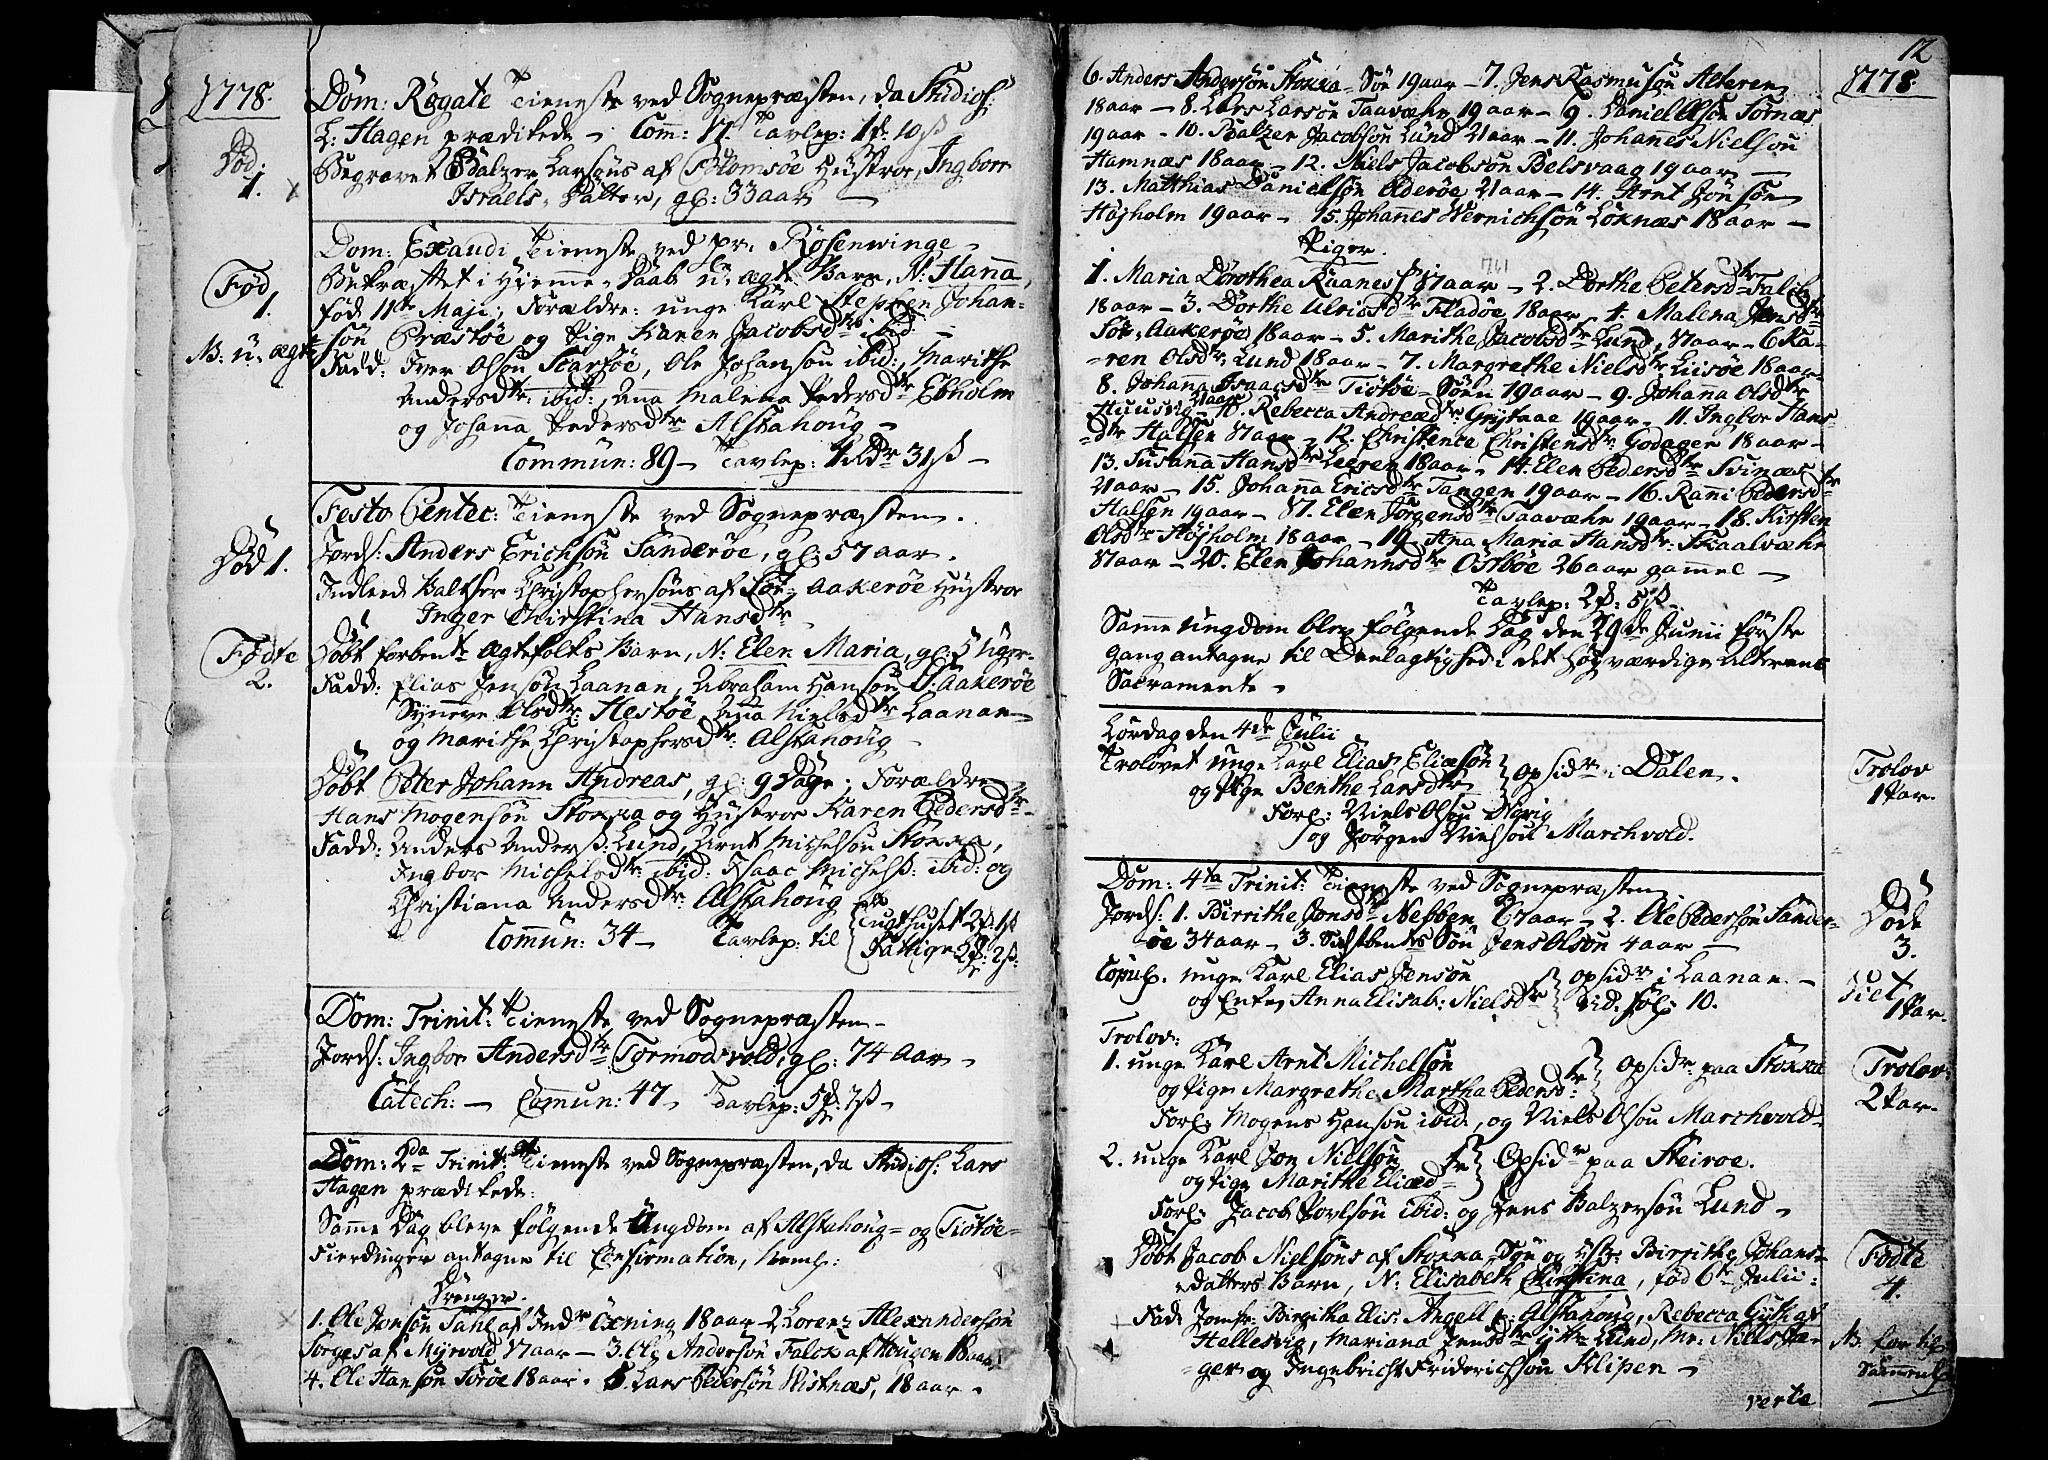 1778.
Dom: Rogate Tieneste ved Sognepræsten, da Studios:
L: Hagen prædikede – Com: 17. Tavlep: 1 10ß
Død
1.
Begravet Balzer Larsøns af Blomsøe Hustroe, Ingborr
Israels-Datter, gl: 33 aar –
Dom: Exaudi Tieneste ved pr: Rosenwinge –
Fød
1.
N: u-ægte
Bekræftet i Hiemme-Daab u-ægte Barn, N: Hanna,
fød 11te Maji; Forældre: unge Karl Stephen Johan-
søn Præstøe og Pige Karen Jacobsdtr ibid: –
Fadd: Iver Olsøn Skarpøe, Ole Johansøn ibid:, Marithe
Andersdtr: ibid:, Ana Malena Pedersdtr Ebholm
og Johana Pedersdtr Alstahoug –
Commun: 89 – Tavlep: 1 31ß –
Festo Pentec: Tieneste ved Sognepræsten.
Død 1.
Jords: Anders Erichsøn Sanderøe, gl: 57 aar.
Indleed Baltser Christophersøns af Sør-Aakerøe Hustroe
Inger Chirstina Hansdtr
Fødte
2.
Døbt forbente Ægtefolks Barn, N: Elen Maria, gl: 5 Uger.
Fadd: Elias Jensøn Laanan, Abraham Hansøn S: Aakerøe
Synneve Olsdtr: Hestøe, Ana Nielsdtr Laanan
og Marithe Christophersdtr: Alstahoug –
Døbt Peter Johann Andreas, gl: 9 Dage; Forældre
Hans Mogensøn Stokka og Hustroe Karen Pedersdtr.
Fadd: Anders Anderß: Lund, Arnt Michelsøn Stokka,
Ingbor Michelsdtr: ibid: Isaac Michelß: ibid: og
Christiana Andersdtr: Alstahoug –
Comun: 34 – Tavlep: til Tugthuset 2 1ß
Fattige 2 2ß:
Dom: Trinit: Tieneste ved Sognepræsten –
Jords: Ingbor Andersdtr Tormodsvold, gl: 74 Aar –
Catech: – Comun: 47 – Tavlep: 5 7ß –
Dom: 2da Trinit: Tieneste ved Sognepræsten, da Studios: Lars
Hagen prædikede:
Samme Dag bleve følgende Ungdom af Alstahoug- og Tiøtøe-
Fierdinger antagne til Confirmation, neml:
Drenger.
1. Ole Jonsøn Dahl af Indr Øxning 18 aar – 2 Lorenz Alexandersøn
Sorges af Myrvold 17 aar – 3. Ole Andersøn Falck af Hougen 18 aar,
4. Ole Hansøn Torøe 18 aar. 5. Lars Pedersøn Qvistnæs, 18 aar.
12
1778.
6. Anders Andersøn Stokka-Søn 19 aar – 7. Jens Rasmusøn Alteren
18 aar – 8. Lars Larsøn Taavæhr 19 aar – 9. Daniel Olsøn Sørnæs
19 aar – 10. Balzer Jacobsøn Lund 21 aar – 11. Johanes Nielsøn
Hamnæs 18 aar – 12. Niels Jacobsøn Belsvaag 19 aar –
13. Matthias Danielsøn Olderøe 21 aar – 14. Arnt Jonsøn
Højholm 19 aar – 15. Johanes Wernichsøn Løknæs 18 aar –
Piger.
1. Maria Dorothea Raanes 17 aar – 2. Dorthe Petersdtr Falch
18 aar – 3. Dorthe Ulricsdtr Fladøe 18 aar – 4. Malena Jensdtr
Sør-Aakerøe 18 aar – 5. Marithe Jacobsdtr Lund, 17 aar – 6 Ka-
ren Olsdtr: Lund 18 aar – 7. Margrethe Nielsdtr Licsøe 18 aar
8. Johana Isaacsdtr Tiøtøe-Søen 19 aar – 9. Johana Olsdtr
Huusvig 21 aar – 10. Rebecca Andreædtr: Grytaae 19 aar – 11. Ingbor Hans
dtr Halsen 17 aar – 12. Christence Christensdtr Godager 18 aar –
13. Susanna Hansdtr Leeren 18 aar – 14. Elen Pedersdtr Svinæs
21 aar – 15. Johanna Ericsdtr Tangen 19 aar – 16. Ranni Pedersdtr
Halsen 19 aar – 17. Elen Jørgensdtr Taavæhr 19 aar – 18. Kirsten
Olsdtr Højholm 18 aar – 19. Ana Maria Hansdtr: Skaalvæhr
17 aar – 20. Elen Johannsdtr Østbøe 26 aar gammel –
Tavlep: 2 5ß
Samme Ungdom blev følgende Dag den 29de Junii første
Gang antagne til Deelagtighed i det høyværdige Alterens
Sacramente –
Lørdag den 4de Julii
Trolov
1 Par.
Trolovet unge Karl Elias Eliæsøn
og Pige Benthe Larsdtr
opsidr i Dalen.
Forl: Niels Olsøn
og Jørgen Nielsøn Marchvold.
Dom: 4ta Trinit: Tieneste ved Sognepræsten
Døde
3.
Jords: 1. Birrithe Jonsdtr Nebben 67 aar – 2. Ole Pedersøn Sander-
øe 34 aar – 3. Søn Jens Olsøn 4 aar –
Viet
1 Par.
Copul. unge Karl Elias Jensøn
og Enke Anna Elisab: Nielsdtr
opsidr i Laanan –
vid: fol: 10.
Trolov:
Trolov:
2 Par.
1. unge Karl Arnt Michelsøn
og Pige Margrethe Martha Pedersdtr:
opsidr paa Stokka
Forl: Mogens Hansøn ibid:, og Niels Olsøn Marchvold –
2. unge Karl Jon Nielsøn
og Pige Marithe Eliædtr
Opsidr paa Steiroe.
Forl: Jacob Povlsøn ibid: og Jens Balzersøn Lund –
Fødte
4.
Døbt Jacob Nielsøns af Stokka-Søn og Hstr: Birrithe Johans-
Datters Barn, N: Elisabeth Chirstina, fød 6te Julii:
Fadd Jomfr: Birgitha Elis: Angell Alstahoug, Rebecca Gyth af
Hellesvig, Mariana Jensdtr ytr Lund, Mr: Nills Jæ-
ger og Ingebricht Friderichsøn Klipen –
verte